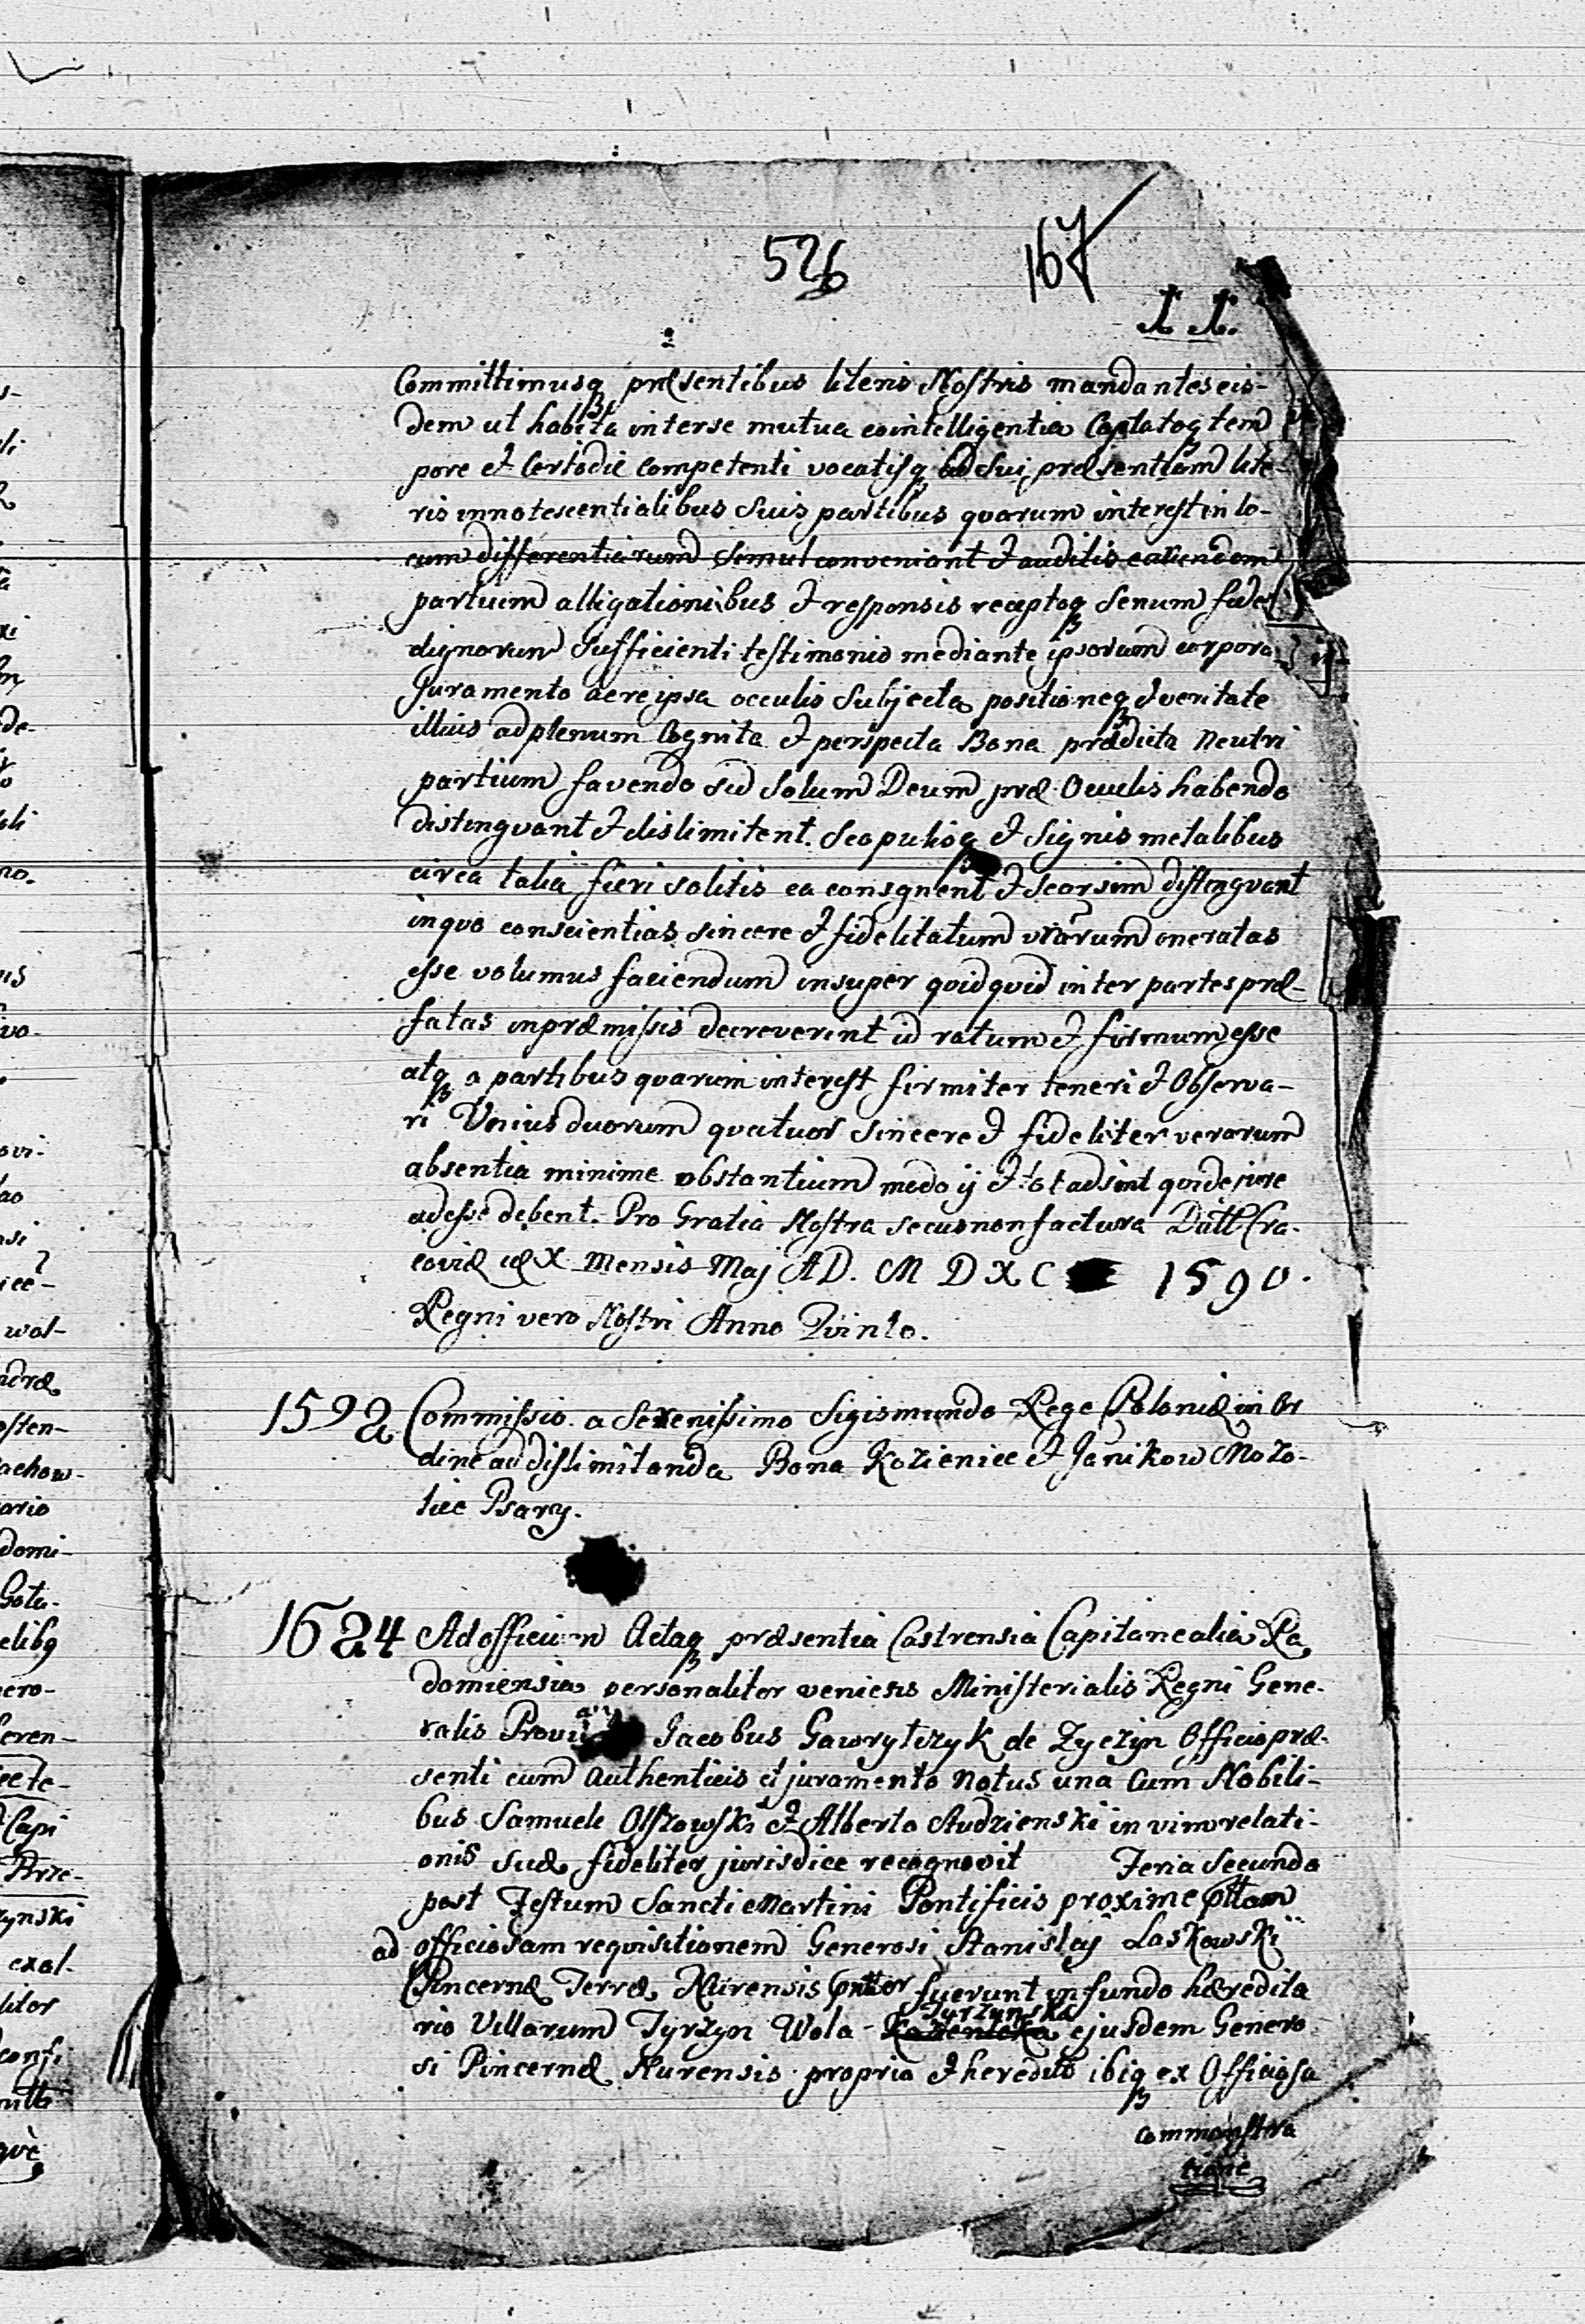 526
167
L L.
Committimusq præsentibus literis Nostris mandantes eis-
dem ut habita inter se mutua cointelligentia Captatoq tem
pore et Certo die competenti vocatisq ad sui præsentiam lite-
ris innotescentialibus suis partibus quorum interest in lo-
cum differentiarum simul conveniant et auditis earundem
partium alligationibus et responsis receptoq senum fide
dignorum sufficienti testimonio mediante ipsorum corpora
Juramento ac re ipsa occulis subjecta positioneq et veritate
illius ad plenum Cognita et perspecta Bona prædicta Neutri
partium favendo sed solum Deum præ Occulis habendo
distinguant et dislimitent. Scopulisq et Signis metalibus
circa talia fieri solitis ea consignent et seorsim distinguant
in quo conscientias sincere et fidelitatum vrarum oneratas
esse volumus faciendum insuper quidquid inter partes præ-
fatas in præmissis decreverint id ratum et firmum esse
atq a partibus quorum interest firmiter teneri et Observa-
ri Unius duorum quatuor sincere et fideliter verorum
absentia minime obstantium modo ij et tot adsint qui de jure
adesse debent. Pro Gratia Nostra secus non factura Datt Cra-
coviæ X Mensis Maj A D. M D X C 1590.
Regni vero Nostri Anno Qvinto.
1592 Commissio a Serenissimo Sigismundo Rege Poloniæ in Or
dine ad dislimitanda Bona Kozienice et Janikow Mozo-
lice Psary.
1624 Ad officium Actaq præsentia Castrensia Capitanealia Ra
domiensia personaliter veniens Ministerialis Regni Gene-
ralis Jacobus Gawrytczyk de Zyczyn Officio præ-
senti cum Authenticis et juramento Notus una Cum Nobili-
bus Samuele Olszowski et Alberto Rudzienski in vim relati-
onis suæ fideliter jurisdice recognovit Feria Secunda
post Festum Sancti Martini Pontificis proxime pttam
ad officiosam requisitionem Generosi Stanislaj Laskowski
Pincernæ Terræ Nurensis fuerunt in fundo hæredita
rio Villarum Tyrzyn Wola Kozienicka Tyrzynska ejusdem Genero
si Pincernæ Nurensis propria et heredit ibiq ex Officiosa
commonstra
tione